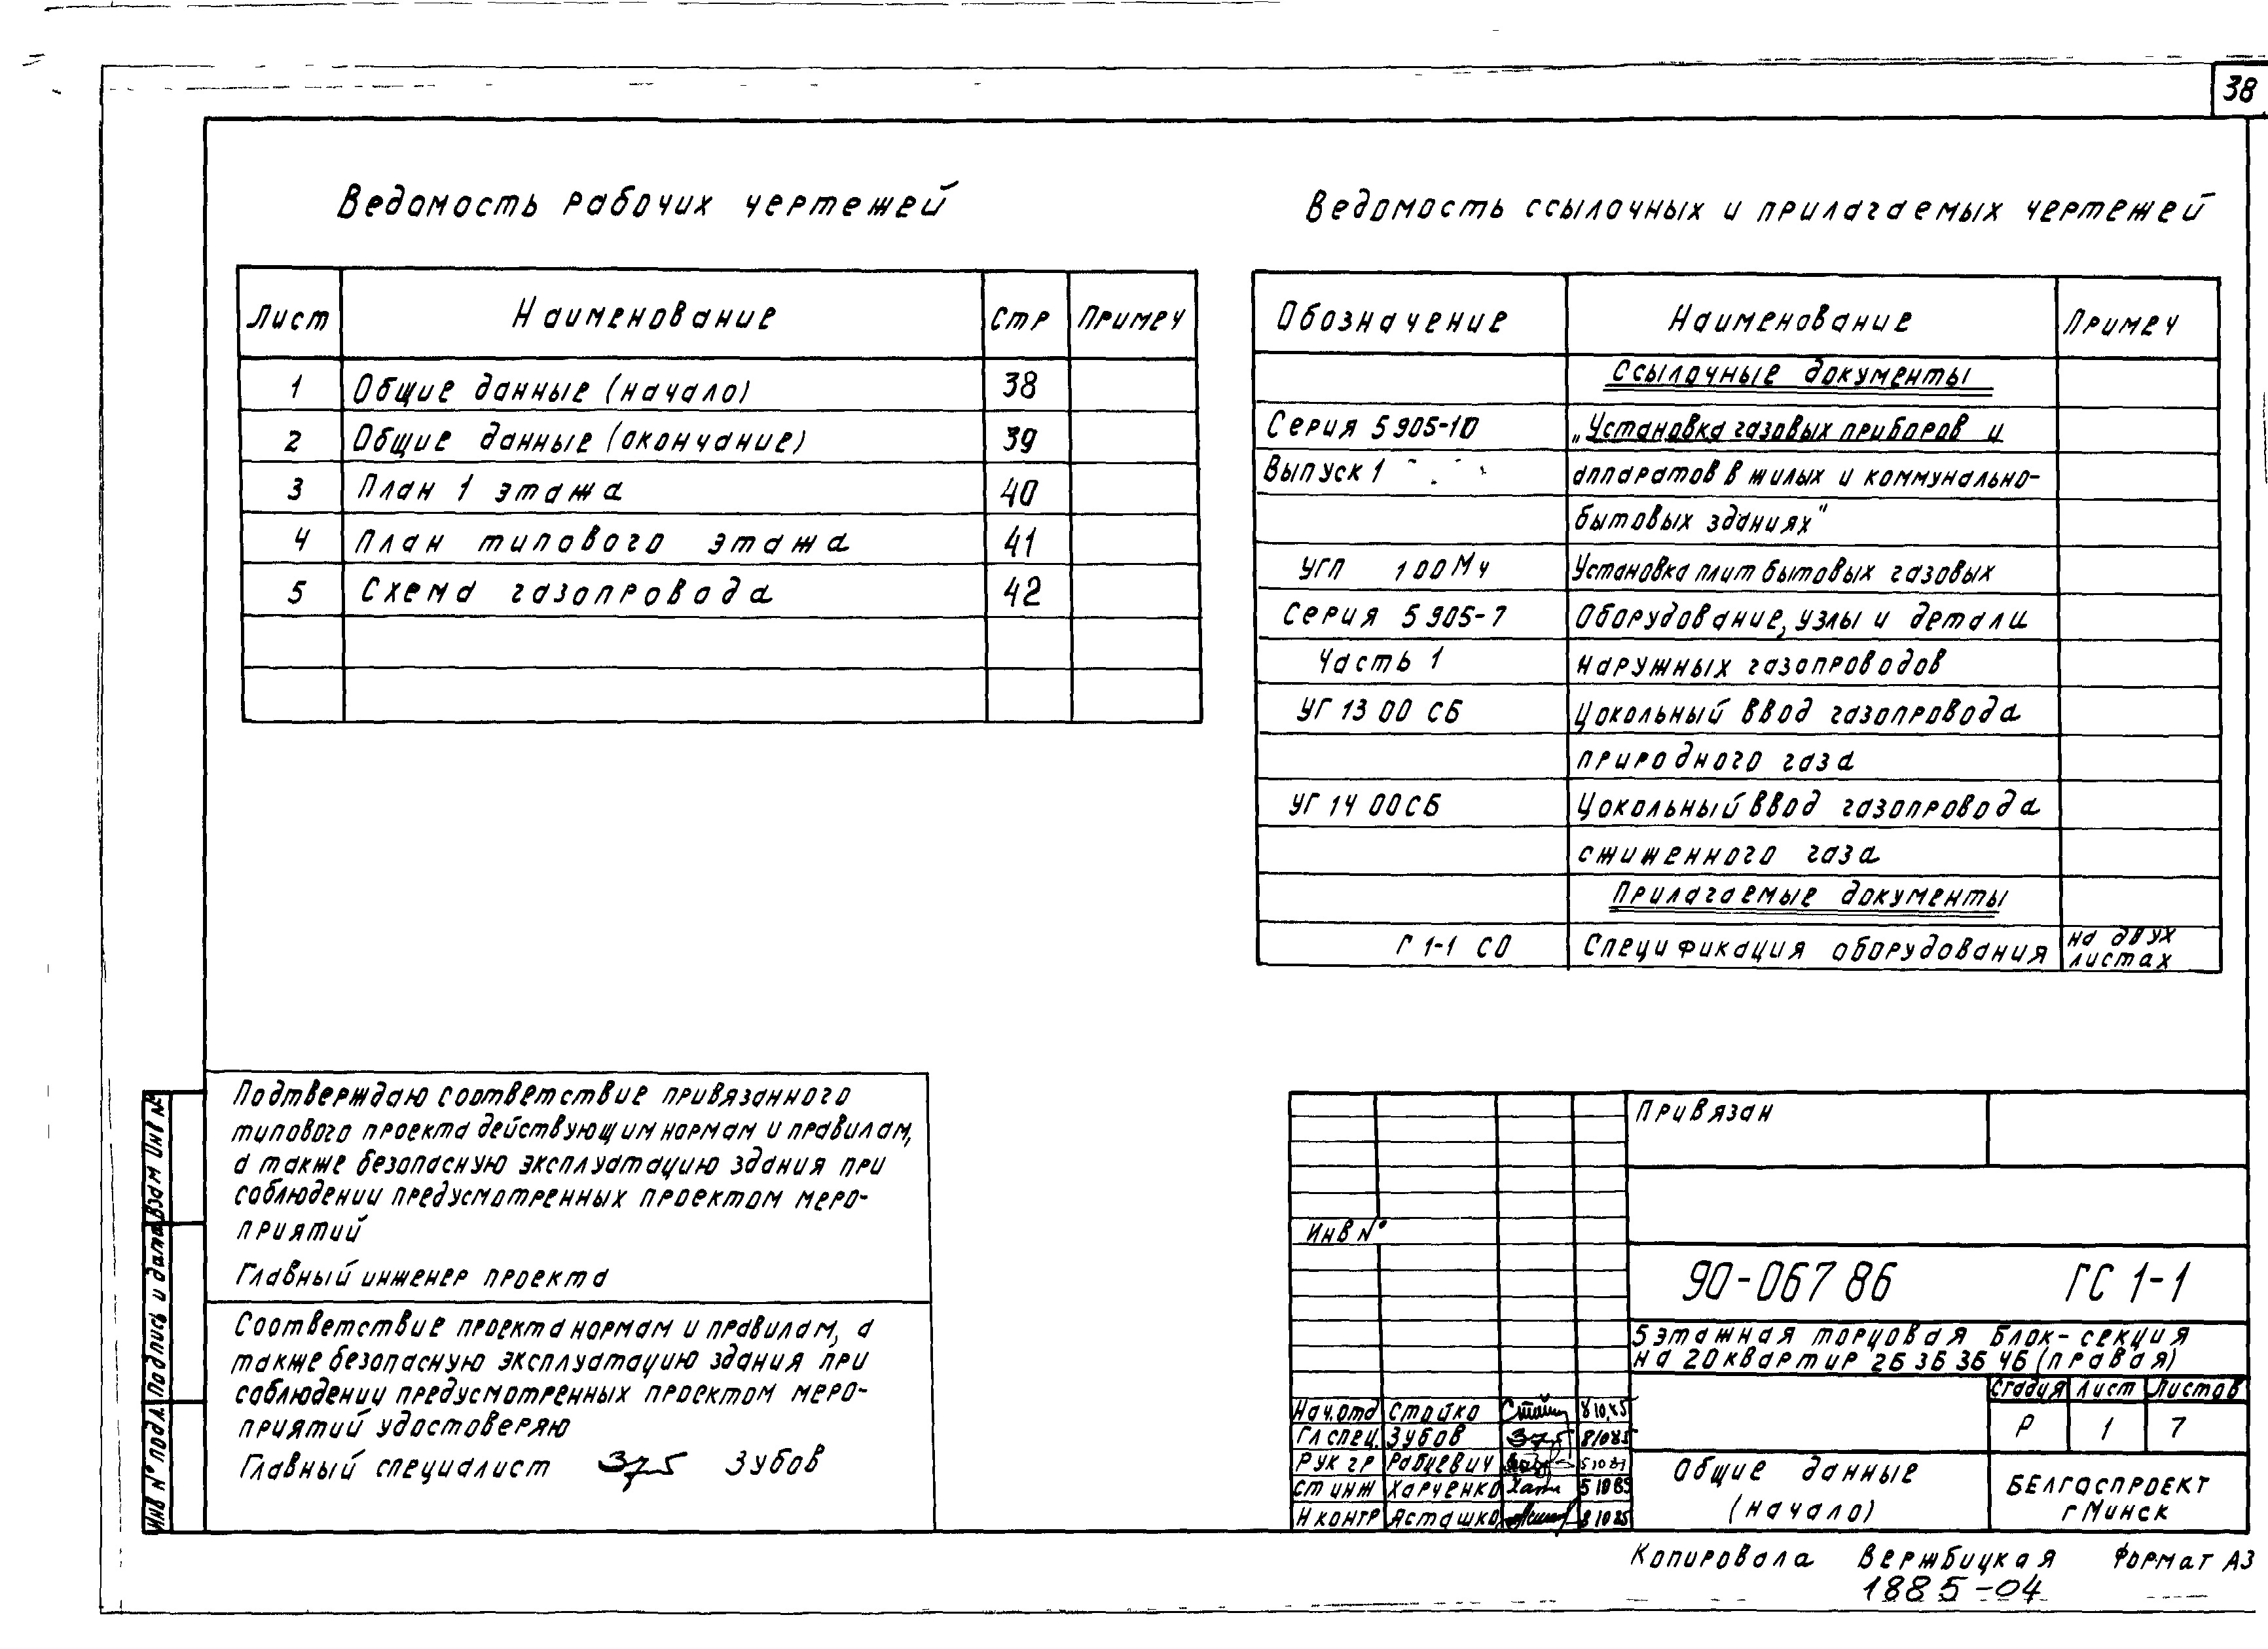 38
Ведомость рабочих чертежей
Лист Наименование Стр Примеч
1 Общие данные (начало) 38
2 Общие данные (окончание) 39
3 План 1 этажа 40
4 План типового этажа 41
5 Схема газопровода 42
Ведомость ссылочных и прилагаемых чертежей
Обозначение Наименование Примеч
Ссылочные документы
Серия 5 905-10 „Установка газовых приборов и
Выпуск 1 аппаратов в жилых и коммунально-
бытовых зданиях"
УГП 100МЧ Установка плит бытовых газовых
Серия 5 905-7 Оборудование, узлы и детали
Часть 1 наружных газопроводов
УГ 13 00 СБ Цокольный ввод газопровода
природного газа
УГ 14 00СБ Цокольный ввод газопровода
сжиженного газа
Прилагаемые документы
Г 1-1 СО Спецификация оборудования на двух
листах
Подтверждаю соответствие привязанного
типового проекта действующим нормам и правилам,
а также безопасную эксплуатацию здания при
соблюдении предусмотренных проектом меро-
приятий
Главный инженер проекта
Соответствие проекта нормам и правилам, а
также безопасную эксплуатацию здания при
соблюдении предусмотренных проектом меро-
приятий удостоверяю
Главный специалист Зубов
Инв № подл. Подпись и дата Взам Инв №
Привязан
Инв №
90-067 86 ГС 1-1
5 этажная торцовая блок-секция
на 20 квартир 2Б 3Б 3Б 4Б (правая)
Стадия Лист Листов
Р 1 7
Нач.отд Стойко 8 10.85
Гл спец. Зубов 8 10 85
Рук гр Рабцевич
Ст инж Харченко 5 10 85
Н контр Ясташко 8 10 85
Общие данные
(начало)
БЕЛГОСПРОЕКТ
г Минск
Копировала Вержбицкая Формат А3
1885-04